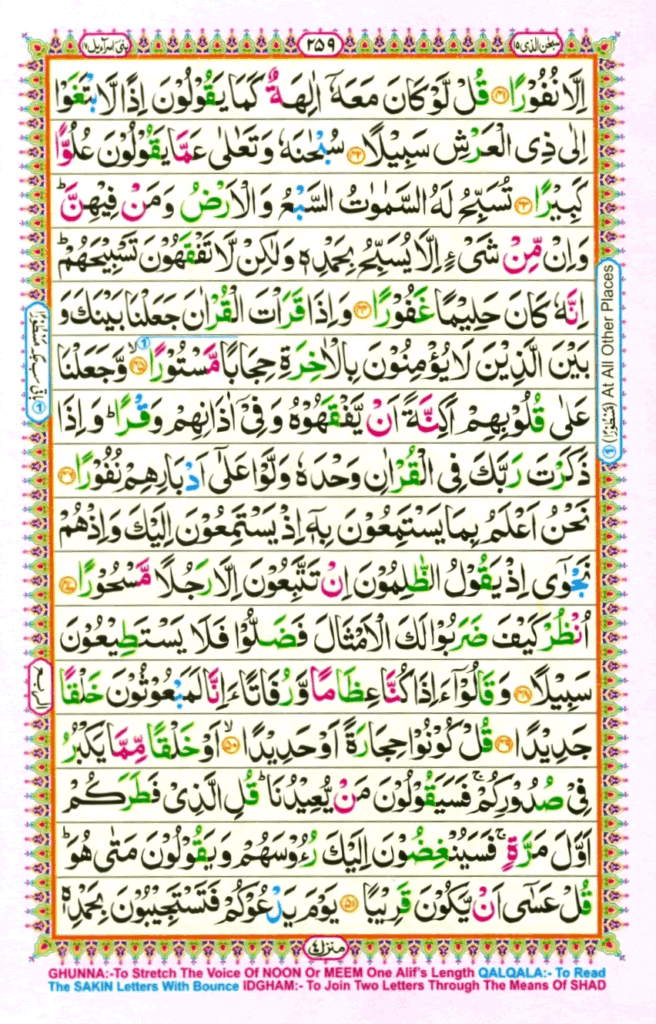 سبحٰن الذی ۱۵
۲۵۹
بنی اسرآءیل ۱۷
اِلَّا نُفُوْرًا ﴿۴۱﴾ قُلْ لَّوْ كَانَ مَعَهٗۤ اٰلِهَةٌ كَمَا یَقُوْلُوْنَ اِذًا لَّابْتَغَوْا
اِلٰی ذِی الْعَرْشِ سَبِیْلًا ﴿۴۲﴾ سُبْحٰنَهٗ وَتَعٰلٰی عَمَّا یَقُوْلُوْنَ عُلُوًّا
كَبِیْرًا ﴿۴۳﴾ تُسَبِّحُ لَهُ السَّمٰوٰتُ السَّبْعُ وَالْاَرْضُ وَمَنْ فِیْهِنَّ ؕ
وَاِنْ مِّنْ شَیْءٍ اِلَّا یُسَبِّحُ بِحَمْدِهٖ وَلٰكِنْ لَّا تَفْقَهُوْنَ تَسْبِیْحَهُمْ ؕ
اِنَّهٗ كَانَ حَلِیْمًا غَفُوْرًا ﴿۴۴﴾ وَاِذَا قَرَاْتَ الْقُرْاٰنَ جَعَلْنَا بَیْنَكَ وَ
بَیْنَ الَّذِیْنَ لَا یُؤْمِنُوْنَ بِالْاٰخِرَةِ حِجَابًا مَّسْتُوْرًا ﴿۴۵﴾ وَّجَعَلْنَا
عَلٰی قُلُوْبِهِمْ اَكِنَّةً اَنْ یَّفْقَهُوْهُ وَفِیْۤ اٰذَانِهِمْ وَقْرًا ؕ وَاِذَا
ذَكَرْتَ رَبَّكَ فِی الْقُرْاٰنِ وَحْدَهٗ وَلَّوْا عَلٰۤی اَدْبَارِهِمْ نُفُوْرًا ﴿۴۶﴾
نَحْنُ اَعْلَمُ بِمَا یَسْتَمِعُوْنَ بِهٖۤ اِذْ یَسْتَمِعُوْنَ اِلَیْكَ وَاِذْ هُمْ
نَجْوٰۤی اِذْ یَقُوْلُ الظّٰلِمُوْنَ اِنْ تَتَّبِعُوْنَ اِلَّا رَجُلًا مَّسْحُوْرًا ﴿۴۷﴾
اُنْظُرْ كَیْفَ ضَرَبُوْا لَكَ الْاَمْثَالَ فَضَلُّوْا فَلَا یَسْتَطِیْعُوْنَ
سَبِیْلًا ﴿۴۸﴾ وَقَالُوْۤا ءَاِذَا كُنَّا عِظَامًا وَّرُفَاتًا ءَاِنَّا لَمَبْعُوْثُوْنَ خَلْقًا
جَدِیْدًا ﴿۴۹﴾ قُلْ كُوْنُوْا حِجَارَةً اَوْ حَدِیْدًا ﴿۵۰﴾ اَوْ خَلْقًا مِّمَّا یَكْبُرُ
فِیْ صُدُوْرِكُمْ ۚ فَسَیَقُوْلُوْنَ مَنْ یُّعِیْدُنَا ؕ قُلِ الَّذِیْ فَطَرَكُمْ
اَوَّلَ مَرَّةٍ ۚ فَسَیُنْغِضُوْنَ اِلَیْكَ رُءُوْسَهُمْ وَیَقُوْلُوْنَ مَتٰی هُوَ ؕ
قُلْ عَسٰۤی اَنْ یَّكُوْنَ قَرِیْبًا ﴿۵۱﴾ یَوْمَ یَدْعُوْكُمْ فَتَسْتَجِیْبُوْنَ بِحَمْدِهٖ
منزل ۴
At All Other Places
GHUNNA:-To Stretch The Voice Of NOON Or MEEM One Alif's Length QALQALA:- To Read
The SAKIN Letters With Bounce IDGHAM:- To Join Two Letters Through The Means Of SHAD